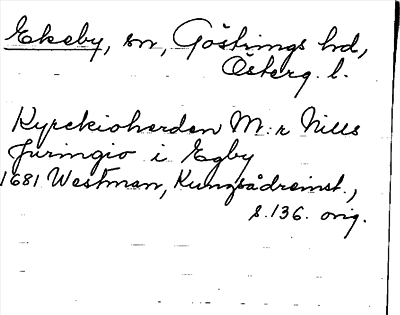 Ekeby, sn, Göstrings hd,
Österg. l.
Kyrckioherden M:r Nills
Juringio i Egby
1681 Westman, Kungsådreinst.,
s. 136. orig.